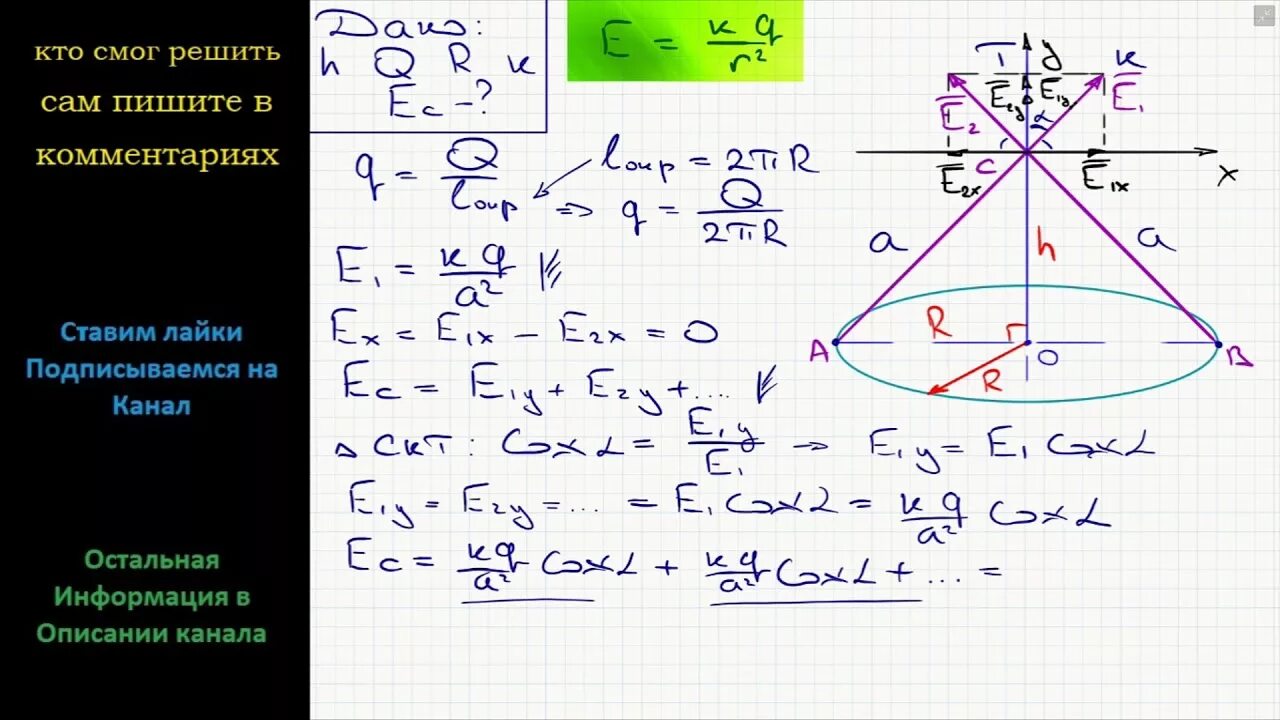 кто смог решить
сам пишите в
комментариях
Ставим лайки
Подписываемся на
Канал
Остальная
Информация в
Описании канала
Дано:
h Q R к
Ec - ?
E = кq/r²
q = Q/lокр
lокр = 2πR
=> q = Q/2πR
E₁ = кq/a²
Eₓ = E₁ₓ - E₂ₓ = 0
Ec = E₁y + E₂y + ....
△ СКТ: Cos α = E₁y/E₁ → E₁y = E₁ Cos α
E₁y = E₂y = ... = E₁ Cos α = кq/a² Cos α
Ec = кq/a² Cos α + кq/a² Cos α + ... =
T y к
E₂ E₂y E₁y E₁
α
C
E₂ₓ E₁ₓ x
a h a
R
A O B
R